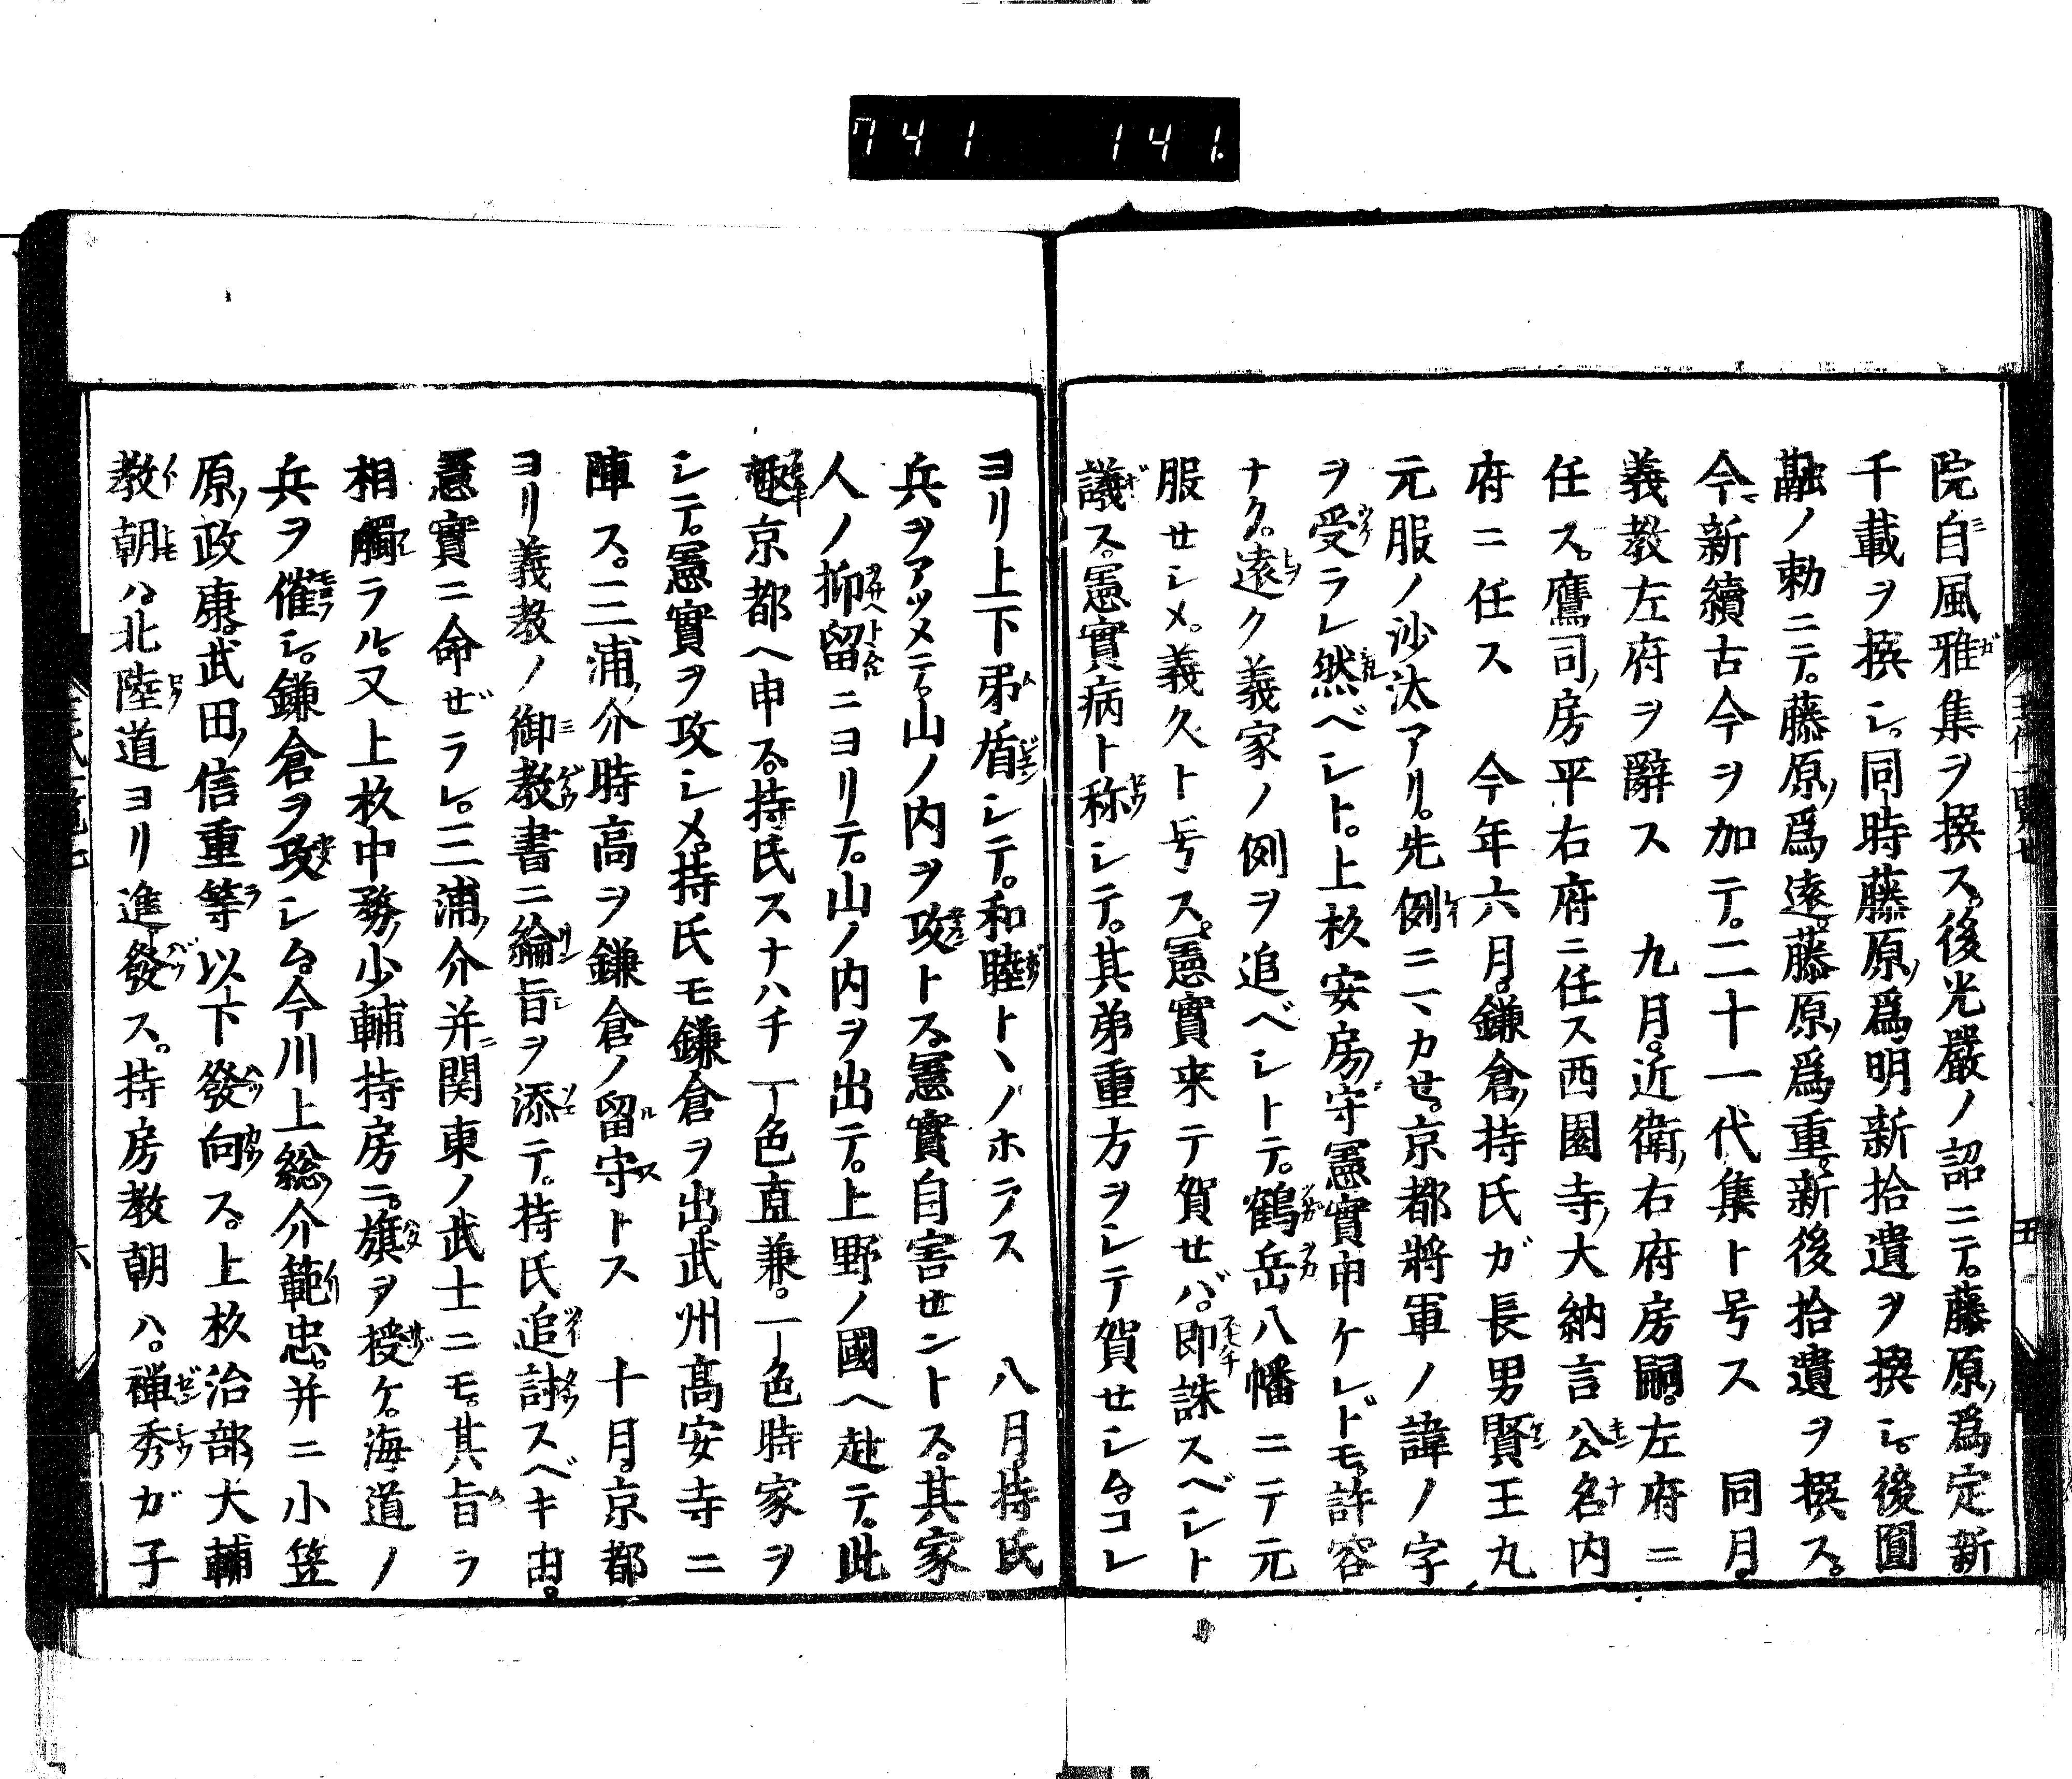 741 141.
院自風雅集ヲ撰ス。後光嚴ノ詔ニテ。藤原ノ爲定新
千載ヲ撰シ。同時藤原ノ爲明新拾遺ヲ撰シ。後圓
融ノ勅ニテ。藤原ノ爲遠。藤原ノ爲重。新後拾遺ヲ撰ス。
今新續古今ヲ加テ。二十一代集ト号ス 同月。
義教左府ヲ辭ス 九月。近衛ノ右府房嗣。左府ニ
任ス。鷹司ノ房平右府ニ任ス西園寺ノ大納言公名内
府ニ任ス 今年六月。鎌倉ノ持氏ガ長男賢王丸
元服ノ沙汰アリ。先例ニマカせ。京都將軍ノ諱ノ字
ヲ受ラレ然ベシト。上杦安房ノ守憲實申ケレドモ。許容
ナク。遠ク義家ノ例ヲ追ベシトテ。鶴岳八幡ニテ元
服セシメ。義久ト号ス。憲實来テ賀せバ。即誅スベシト
議ス。憲實病ト称シテ。其弟重方ヲシテ賀せシム。コレ
ヨリ上下矛盾シテ。和睦トヽノホラス 八月。持氏
兵ヲアツメテ。山ノ内ヲ攻トス。憲實自害せントス。其家
人ノ抑留ニヨリテ。山ノ内ヲ出テ。上野ノ國ヘ赴テ。此
趣京都ヘ申ス。持氏スナハチ一色直兼。一色時家ヲ
シテ。憲實ヲ攻シメ。持氏モ鎌倉ヲ出。武州髙安寺ニ
陣ス。三浦ノ介時高ヲ鎌倉ノ留守トス 十月。京都
ヨリ義教ノ御教書ニ綸旨ヲ添テ。持氏追討スベキ由。
憲實ニ命ぜラレ。三浦ノ介并ニ関東ノ武士ニモ。其旨ヲ
相觸ラル。又上杦中務ノ少輔持房ニ。旗ヲ授ケ。海道ノ
兵ヲ催シ。鎌倉ヲ攻シム。今川上総ノ介範忠。并ニ小笠
原ノ政康。武田ノ信重等以下發向ス。上杦治部ノ大輔
教朝ハ。北陸道ヨリ進發ス。持房教朝ハ。禅秀ガ子